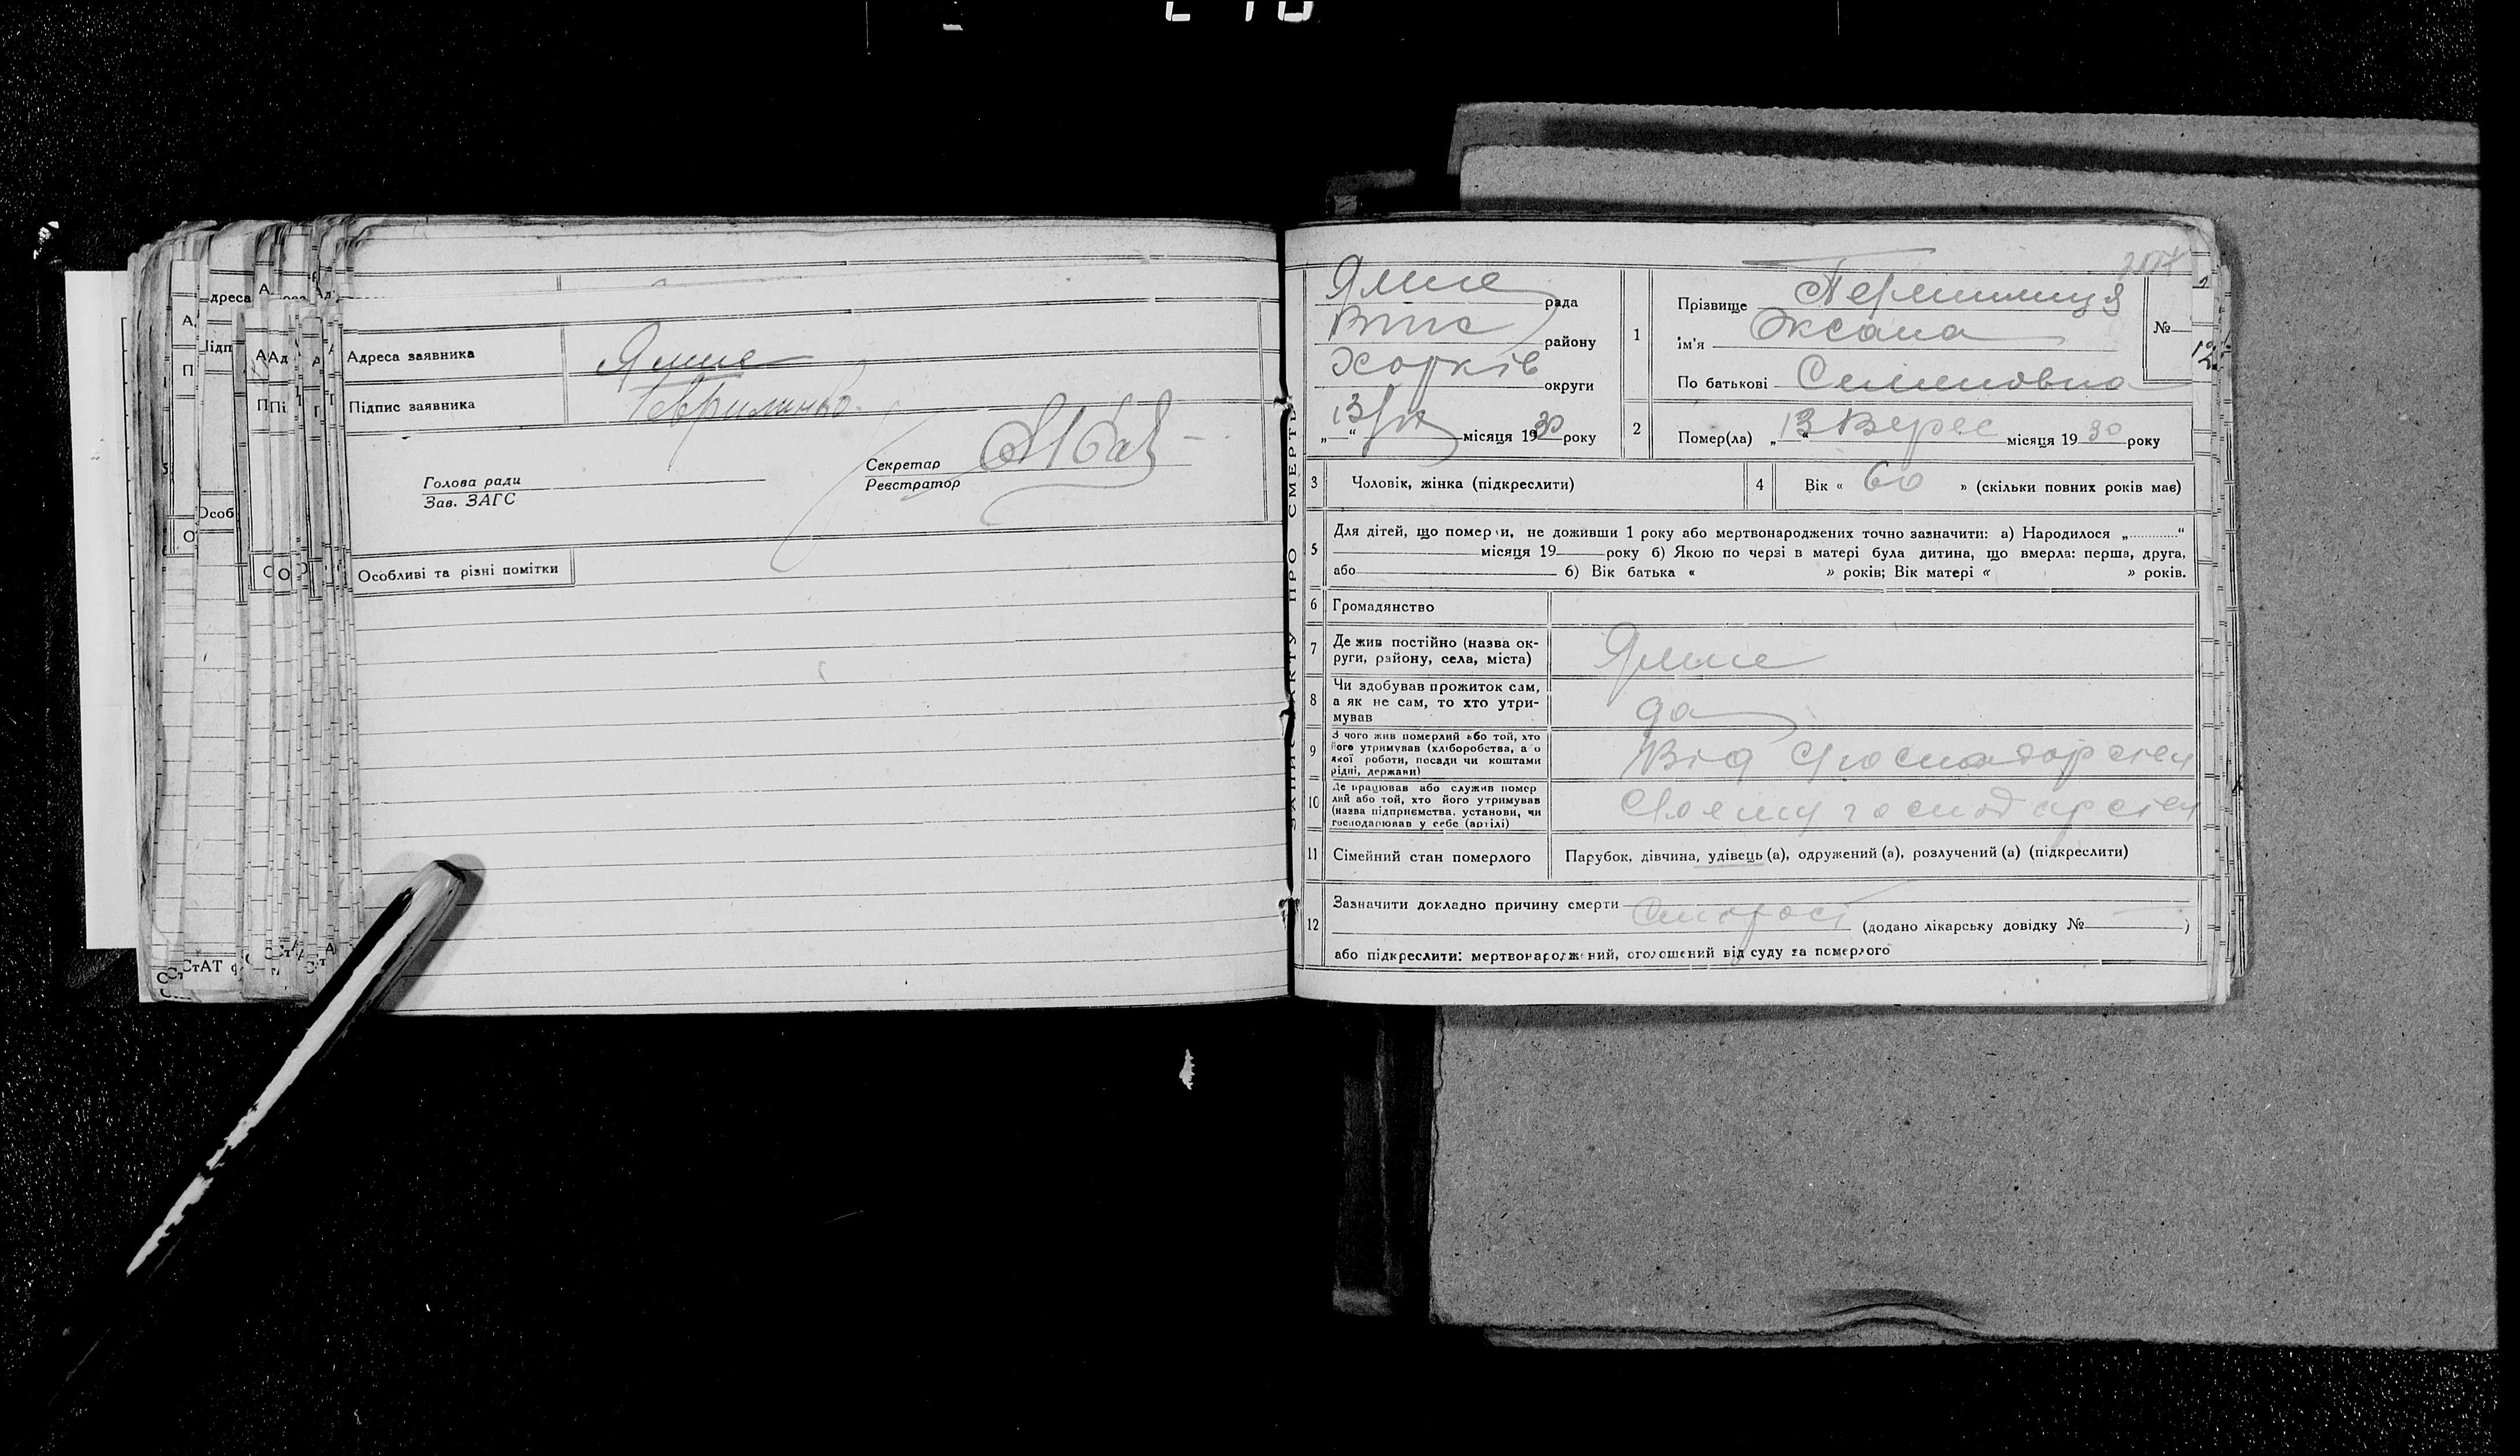 Адреса заявника Ямне
Підпис заявника
Голова ради
Зав. ЗАГС
Секретар
Реєстратор
Особливі та різні помітки
ЗАПИС АКТУ ПРО СМЕРТЬ
Ямне рада
району
Харків округи
„13“ місяця 1930 року
1
Прізвище
ім'я Оксана
По батькові Семеновна
№
2
Помер(ла) „13“ Верес місяця 1930 року
3 Чоловік, жінка (підкреслити)
4 Вік « 60 » (скільки повних років має)
5 Для дітей, що померли, не доживши 1 року або мертвонароджених точно зазначити: а) Народилося „............“
місяця 19 року б) Якою по черзі в матері була дитина, що вмерла: перша, друга,
або б) Вік батька « » років; Вік матері « » років.
6 Громадянство
7 Де жив постійно (назва ок-
руги, району, села, міста) Ямне
8 Чи здобував прожиток сам,
а як не сам, то хто утри-
мував да
9 З чого жив померлий або той, хто
його утримував (хліборобства, а о
якої роботи, посади чи коштами
рідні, держави) Від
10 Де працював або служив помер
лий або той, хто його утримував
(назва підприємства, установи, чи
господарював у себе (артілі)
11 Сімейний стан померлого Парубок, дівчина, удівець (а), одружений (а), розлучений (а) (підкреслити)
12 Зазначити докладно причину смерти Старость
(додано лікарську довідку № )
або підкреслити: мертвонароджений, оголошений від суду за померлого